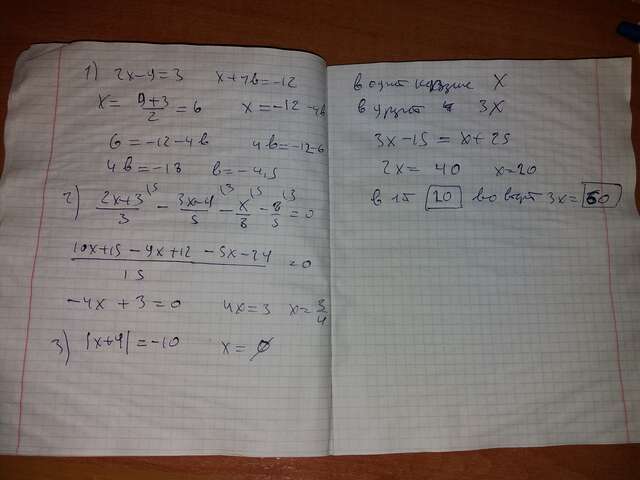 1) 2x-9=3 x+4b=-12
x = 9+3/2 = 6 x=-12-4b
6=-12-4b 4b=-12-6
4b=-18 b=-4,5
2) 2x+3/3 - 3x-4/5 - x/3 - 8/5 = 0
10x+15-9x+12-5x-24/15 = 0
-4x+3=0 4x=3 x=3/4
3) |x+9|=-10 x=∅
в одной x
в 3x
3x-15=x+25
2x=40 x=20
в 20 во 3x=60